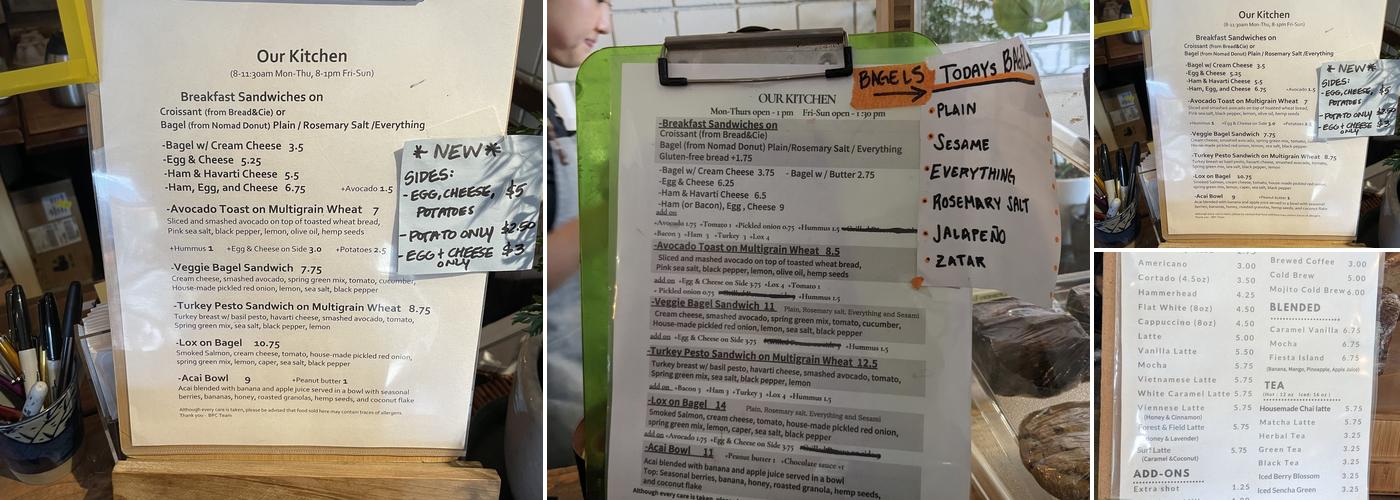 Our Kitchen
(8-11:30am Mon-Thu, 8-1pm Fri-Sun)
Breakfast Sandwiches on
Croissant (from Bread&Cie) or
Bagel (from Nomad Donut) Plain / Rosemary Salt /Everything
-Bagel w/ Cream Cheese 3.5
-Egg & Cheese 5.25
-Ham & Havarti Cheese 5.5
-Ham, Egg, and Cheese 6.75 +Avocado 1.5
-Avocado Toast on Multigrain Wheat 7
Sliced and smashed avocado on top of toasted wheat bread,
Pink sea salt, black pepper, lemon, olive oil, hemp seeds
+Hummus 1 +Egg & Cheese on Side 3.0 +Potatoes 2.5
-Veggie Bagel Sandwich 7.75
Cream cheese, smashed avocado, spring green mix, tomato, cucumber,
House-made pickled red onion, lemon, sea salt, black pepper
-Turkey Pesto Sandwich on Multigrain Wheat 8.75
Turkey breast w/ basil pesto, havarti cheese, smashed avocado, tomato,
Spring green mix, sea salt, black pepper, lemon
-Lox on Bagel 10.75
Smoked Salmon, cream cheese, tomato, house-made pickled red onion,
spring green mix, lemon, caper, sea salt, black pepper
-Acai Bowl 9 +Peanut butter 1
Acai blended with banana and apple juice served in a bowl with seasonal
berries, bananas, honey, roasted granolas, hemp seeds, and coconut flake
Although every care is taken, please be advised that food sold here may contain traces of allergens.
Thank you - BPC Team
* NEW *
SIDES:
- EGG, CHEESE, $5
POTATOES
- POTATO ONLY $2.50
- EGG + CHEESE $3
ONLY
OUR KITCHEN
Mon-Thurs open - 1 pm Fri-Sun open - 1:30 pm
-Breakfast Sandwiches on
Croissant (from Bread&Cie)
Bagel (from Nomad Donut) Plain/Rosemary Salt / Everything
Gluten-free bread +1.75
-Bagel w/ Cream Cheese 3.75 - Bagel w/ Butter 2.75
-Egg & Cheese 6.25
-Ham & Havarti Cheese 6.5
-Ham (or Bacon), Egg, Cheese 9
add on
+Avocado 1.75 +Tomato 1 +Pickled onion 0.75 +Hummus 1.5
+Bacon 3 +Ham 3 +Turkey 3 +Lox 4
-Avocado Toast on Multigrain Wheat 8.5
Sliced and mashed avocado on top of toasted wheat bread,
Pink sea salt, black pepper, lemon, olive oil, hemp seeds
add on +Egg & Cheese on Side 3.75 +Lox 4 +Tomato 1
+ Pickled onion 0.75 +Hummus 1.5
-Veggie Bagel Sandwich 11 Plain, Rosemary salt, Everything and Sesami
Cream cheese, smashed avocado, spring green mix, tomato, cucumber,
House-made pickled red onion, lemon, sea salt, black pepper
add on +Egg & Cheese on Side 3.75 +Hummus 1.5
-Turkey Pesto Sandwich on Multigrain Wheat 12.5
Turkey breast w/ basil pesto, havarti cheese, smashed avocado, tomato,
Spring green mix, sea salt, black pepper, lemon
add on +Bacon 3 +Ham 3 +Turkey 3 +Lox 4 +Hummus 1.5
-Lox on Bagel 14 Plain, Rosemary salt, Everything and Sesami
Smoked Salmon, cream cheese, tomato, house-made pickled red onion,
spring green mix, lemon, caper, sea salt, black pepper
add on +Avocado 1.75 +Egg & Cheese on Side 3.75
-Acai Bowl 11 +Peanut butter 1 +Chocolate sauce +1
Acai blended with banana and apple juice served in a bowl
Top: Seasonal berries, banana, honey, roasted granola, hemp seeds,
and coconut flake
BAGELS
TODAYS BAGELS
• PLAIN
• SESAME
• EVERYTHING
• ROSEMARY SALT
• JALAPEÑO
• ZATAR
Our Kitchen
(8-11:30am Mon-Thu, 8-1pm Fri-Sun)
Breakfast Sandwiches on
Croissant (from Bread&Cie) or
Bagel (from Nomad Donut) Plain / Rosemary Salt /Everything
-Bagel w/ Cream Cheese 3.5
-Egg & Cheese 5.25
-Ham & Havarti Cheese 5.5
-Ham, Egg, and Cheese 6.75 +Avocado 1.5
-Avocado Toast on Multigrain Wheat 7
Sliced and smashed avocado on top of toasted wheat bread,
Pink sea salt, black pepper, lemon, olive oil, hemp seeds
+Hummus 1 +Egg & Cheese on Side 3.0 +Potatoes
-Veggie Bagel Sandwich 7.75
Cream cheese, smashed avocado, spring green mix, tomato, cucumber,
House-made pickled red onion, lemon, sea salt, black pepper
-Turkey Pesto Sandwich on Multigrain Wheat 8.75
Turkey breast w/ basil pesto, havarti cheese, smashed avocado, tomato,
Spring green mix, sea salt, black pepper, lemon
-Lox on Bagel 10.75
Smoked Salmon, cream cheese, tomato, house-made pickled red onion,
spring green mix, lemon, caper, sea salt, black pepper
-Acai Bowl 9 +Peanut butter 1
Acai blended with banana and apple juice served in a bowl with seasonal
berries, bananas, honey, roasted granolas, hemp seeds, and coconut flake
* NEW *
SIDES:
- EGG, CHEESE, $5
POTATOES
- POTATO ONLY $2.50
- EGG + CHEESE $3
ONLY
Americano 3.00
Cortado (4.5oz) 3.50
Hammerhead 4.25
Flat White (8oz) 4.50
Cappuccino (8oz) 4.50
Latte 5.00
Vanilla Latte 5.50
Mocha 5.75
Vietnamese Latte 5.75
White Caramel Latte 5.75
Viennese Latte 5.75
(Honey & Cinnamon)
Forest & Field Latte 5.75
(Honey & Lavender)
Surf Latte 5.75
(Caramel & Coconut)
ADD-ONS
Extra shot 1.25
Brewed Coffee 3.00
Cold Brew 5.00
Mojito Cold Brew 6.00
BLENDED
Caramel Vanilla 6.75
Mocha 6.75
Fiesta Island 6.75
(Banana, Mango, Pineapple, Apple Juice)
TEA
(Hot : 12 oz Iced: 16 oz)
Housemade Chai latte 5.75
Matcha Latte 5.75
Herbal Tea 3.25
Green Tea 3.25
Black Tea 3.25
Iced Berry Blossom 3.25
Iced Sencha Green 3.25